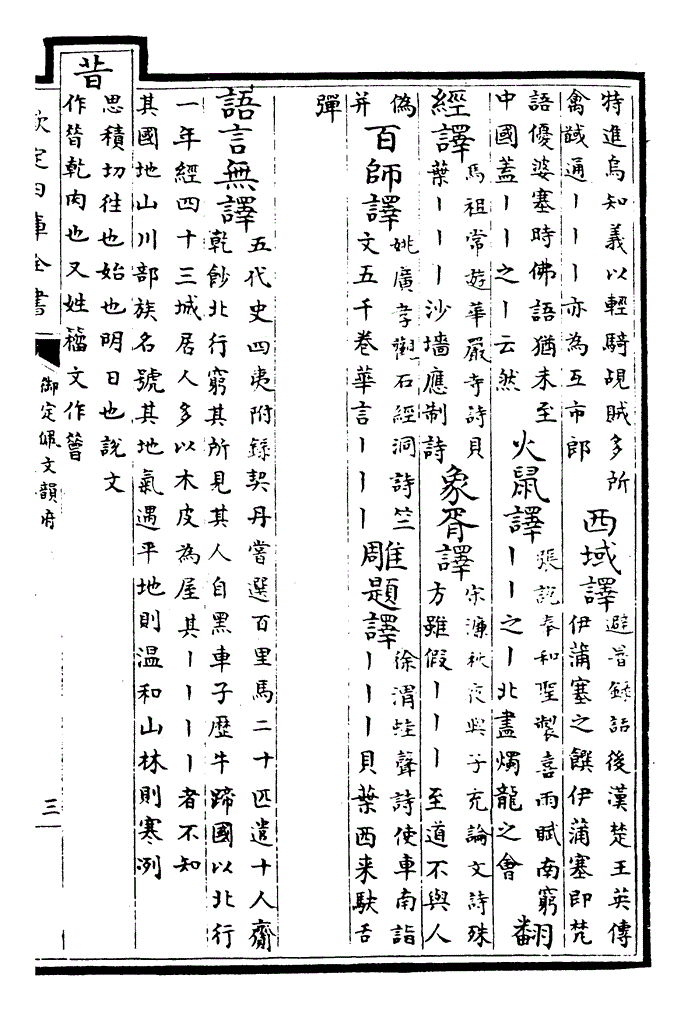 特進烏知義以輕騎覘賊多所
禽馘通丨丨丨亦為互市郎
西域譯
避暑錄話後漢楚王英傳
伊蒲塞之饌伊蒲塞即梵
語優婆塞時佛語猶未至
中國蓋丨丨之丨云然
火鼠譯
張說奉和聖製喜雨賦南窮
丨丨之丨北盡燭龍之會
翻
經譯
馬祖常遊華嚴寺詩貝
葉丨丨丨沙墻應制詩
象胥譯
宋濂秋夜與子充論文詩殊
方雖假丨丨丨至道不與人
偽
并
百師譯
姚廣孝觀石經洞詩竺
文五千卷華言丨丨丨
雕題譯
徐渭蛙聲詩使車南詣
丨丨丨貝葉西来馱舌
彈
語言無譯
五代史四夷附錄契丹嘗選百里馬二十匹遣十人齎
乾𩝣北行窮其所見其人自黑車子歴牛蹄國以北行
一年經四十三城居人多以木皮為屋其丨丨丨丨者不知
其國地山川部族名號其地氣遇平地則温和山林則寒冽
昔
思積切徃也始也明日也說文
作㫺乾肉也又姓籀文作
欽定四庫全書
御定佩文韻府
三